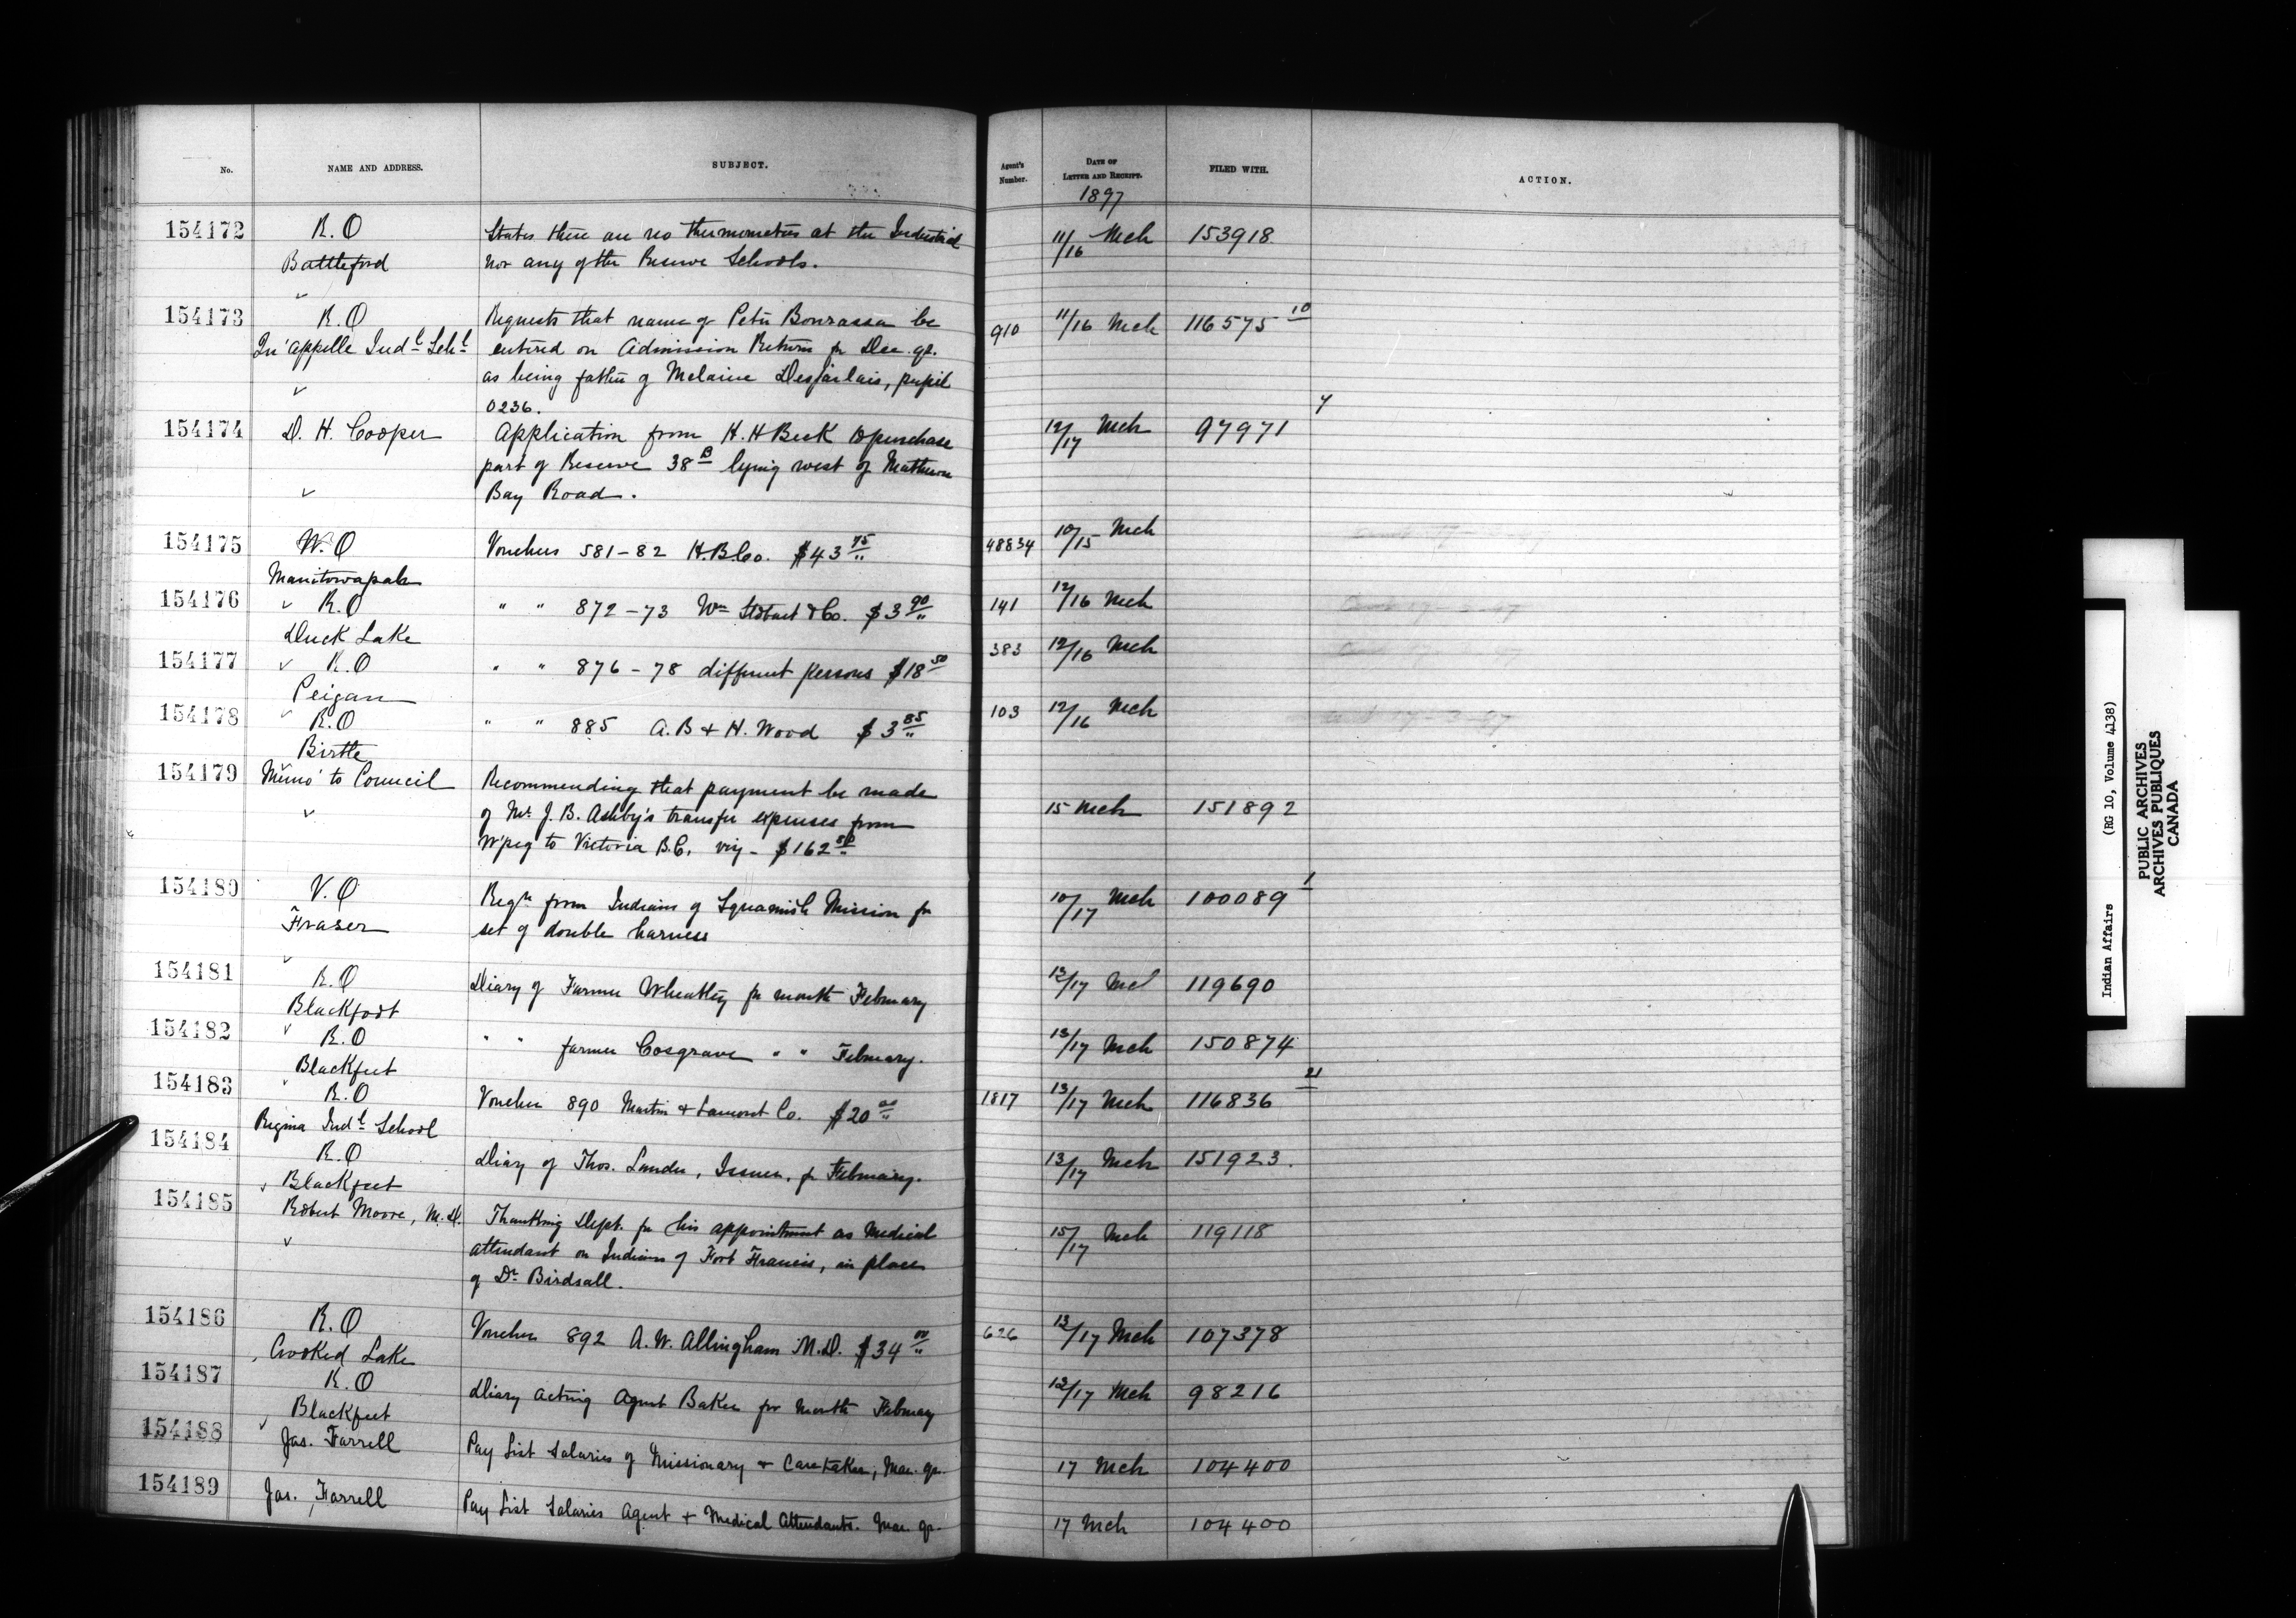 No. NAME AND ADDRESS. SUBJECT. Agent's Number. DATE OF LETTER AND RECEIPT. FILED WITH. ACTION.
1897
154172 R.O States there are no thermometers at the Industrial 11/16 Mch 153918
Battleford nor any of the Reserve Schools.
154173 R.O Requests that name of Peter Bourassa be 910 11/16 Mch 116575 10
Qu'Appelle Indl Schl entered on Admission Return for Dec. qr.
as being father of Melaine Desjarlais, pupil
0236.
154174 D. H. Cooper Application from H. H Beck to purchase 12/17 Mch 97971 4
part of Reserve 38 B lying west of Matheson
Bay Road.
154175 W.O Vouchers 581-82 H.B.Co. $43 75 48834 10/15 Mch
Manitowapah
154176 R.O " " 872-73 Wm Stobart & Co. $3 90 141 12/16 Mch
Duck Lake
154177 R.O " " 876-78 different persons $18 50 383 12/16 Mch
Peigan
154178 R.O " " 885 A.B & H. Wood $3 85 103 12/16 Mch
Birtle
154179 Memo' to Council Recommending that payment be made
of Mr J. B. Ashby's transfer expenses from 15 Mch 151892
W'peg to Victoria B.C. viz - $162 50
154180 V.O Reqn from Indians of Squamish Mission for 10/17 Mch 100089 1
Fraser set of double harness
154181 R.O Diary of Farmer Wheatley for month February 13/17 Mch 119690
Blackfoot
154182 R.O " " farmer Cosgrave " " February. 13/17 Mch 150874
Blackfeet
154183 R.O Voucher 890 Martin & Lamont Co. $20 00 1817 13/17 Mch 116836 21
Regina Indl School
154184 R.O Diary of Thos. Lauder, Issuer, for February. 13/17 Mch 151923.
Blackfeet
154185 Robert Moore, M.D. Thanking Dept. for his appointment as Medical 15/17 Mch 119118
attendant on Indians of Fort Francis, in place
of Dr Birdsall.
154186 R.O Voucher 892 A. W. Allingham M.D. $34 00 626 13/17 Mch 107378
Crooked Lake
154187 R.O Diary Acting Agent Baker for month February 13/17 Mch 98216
Blackfeet
154188 Jas. Farrell Pay List Salaries of Missionary & Caretaker, Mar. qr. 17 Mch 104400
154189 Jas. Farrell Pay List Salaries Agent & Medical Attendants. Mar. qr. 17 Mch 104400
Indian Affairs (RG 10, Volume 4138)
PUBLIC ARCHIVES
ARCHIVES PUBLIQUES
CANADA